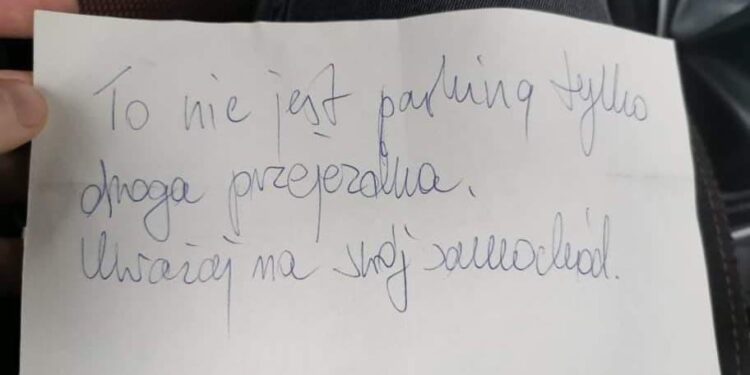 To nie jest parking tylko
droga przejezdna.
Uważaj na swój samochód.